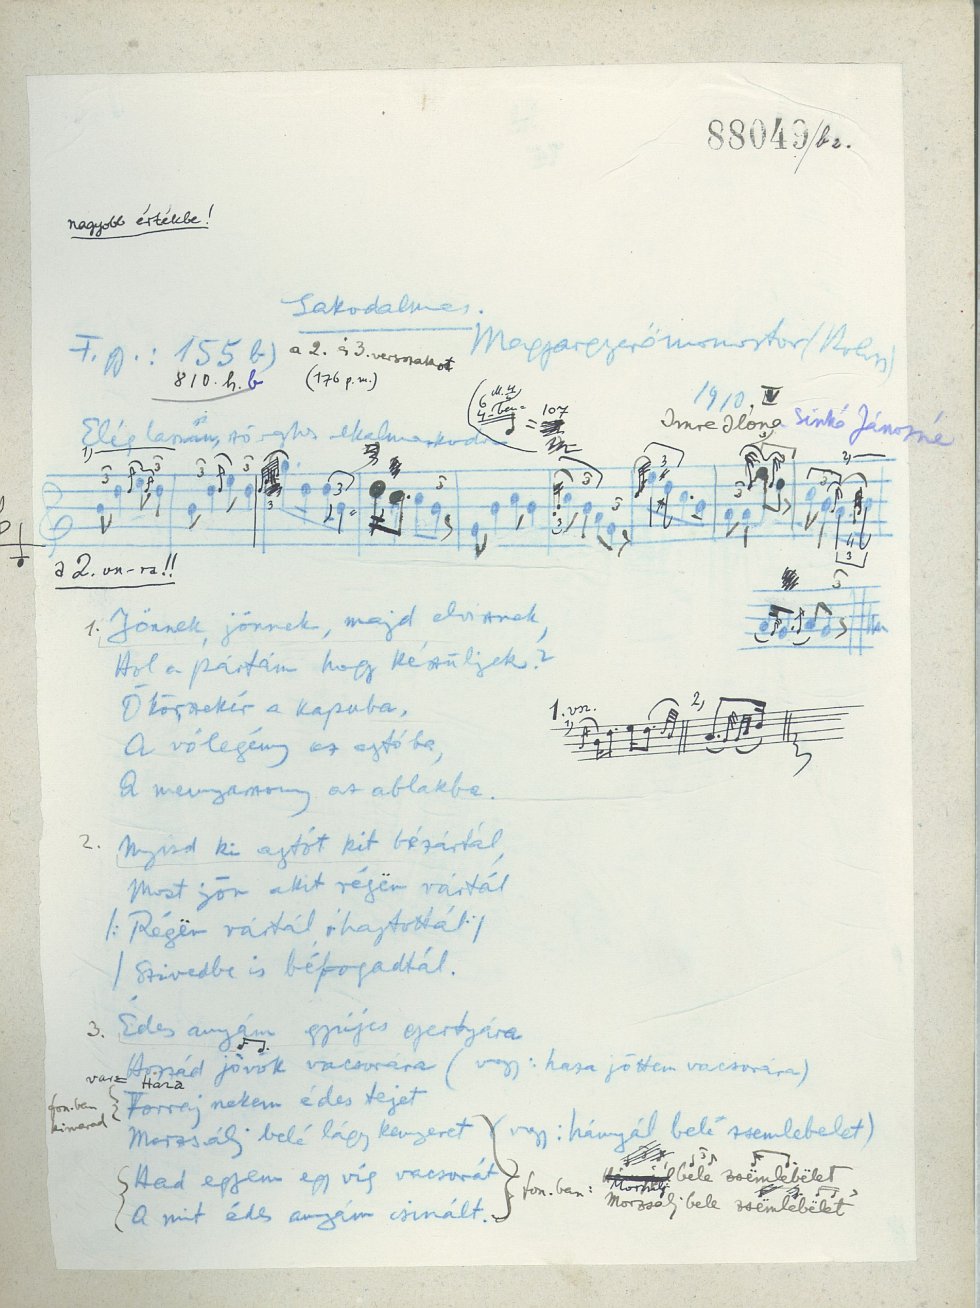 88049/b2.
nagyobb értékbe!
Lakodalmas.
F. gy.: 155 b)
a 2. és 3. versszakot
Magyargyerőmonostor (Kolozs)
810. h. b
(176 p.m.)
1910. IV
Imre Ilona Sinkó Jánosné
Elég lassan, szöveghez alkalmazkodva
= 107
1,)
2,)
a 2. vn-ra!!
1. Jönnek, jönnek, majd elvisznek,
Hol a pártám hogy készüljek?
Ökörszekér a kapuba,
A vőlegény az ajtóba,
A menyasszony az ablakba.
1. vsz.
1,)
2,)
2. Nyisd ki ajtót kit bézártál,
Most jön akit régën vártál
/: Régën vártál óhajtottál :/
/ Szivedbe is béfogadtál.
3. Édes anyám gyújcs gyertyára
Hozzád jövök vacsorára (vagy: haza jöttem vacsorára)
var= Haza
Forraj nekem édes tejet
fon.ban kimarad
Morzsálj belé lágy kenyeret (vagy: hányál belé zsemlebelet)
Had egyem egy víg vacsorát
A mit édes anyám csinált.
fon.ban: Morzsálj bele zsëmlebëlet
Morzsálj bele zsëmlebëlet